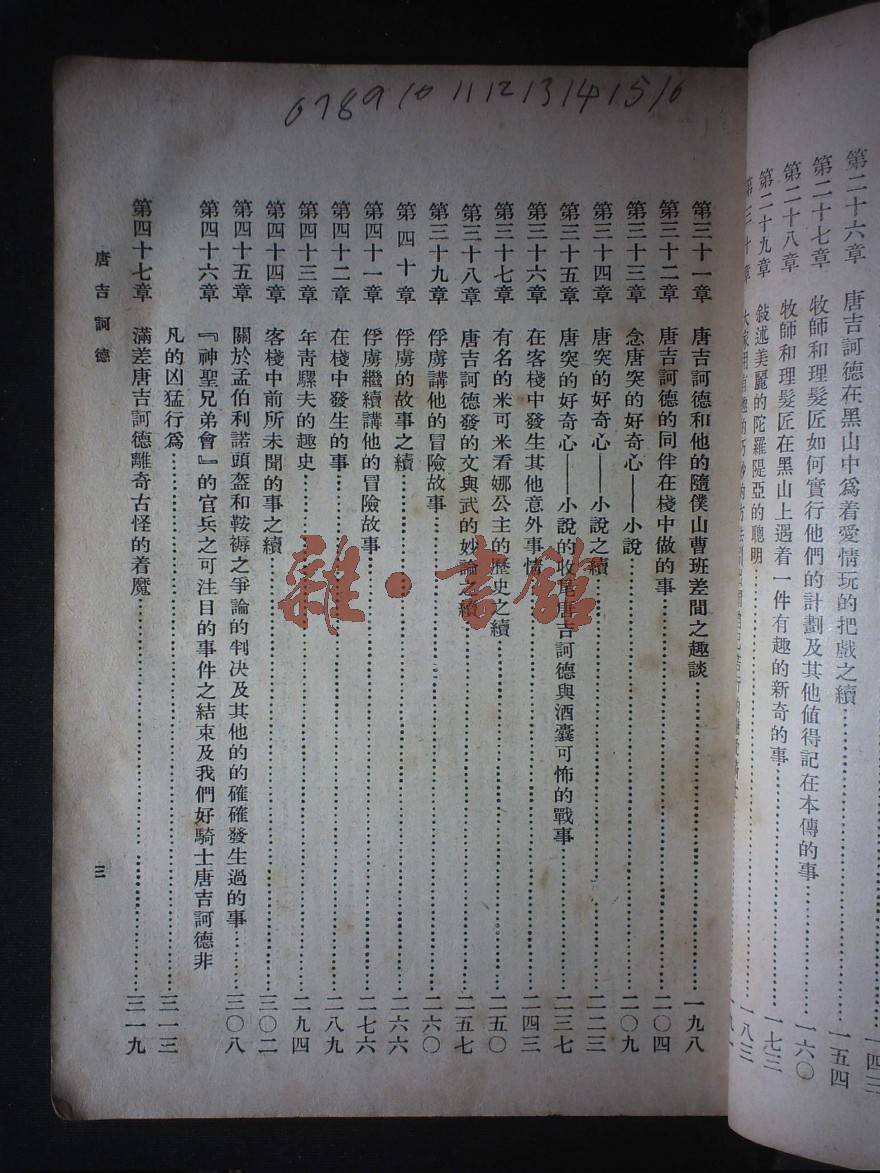 6 7 8 9 10 11 12 13 14 15 16
第二十六章 唐吉訶德在黑山中爲着愛情玩的把戲之續……一四三
第二十七章 牧師和理髮匠如何實行他們的計劃及其他値得記在本傳的事……一五四
第二十八章 牧師和理髮匠在黑山上遇着一件有趣的新奇的事……一六〇
第二十九章 敍述美麗的陀羅隄亞的聰明……一七三
第三十章
一八三
第三十一章 唐吉訶德和他的隨僕山曹班差間之趣談……一九八
第三十二章 唐吉訶德的同伴在棧中做的事……二〇四
第三十三章 念唐突的好奇心——小說……二〇九
第三十四章 唐突的好奇心——小說之續……二二三
第三十五章 唐突的好奇心——小說的收尾唐吉訶德與酒囊可怖的戰事……二三七
第三十六章 在客棧中發生其他意外事情……二四三
第三十七章 有名的米可米看娜公主的歷史之續……二五〇
第三十八章 唐吉訶德發的文與武的妙論之續……二五七
第三十九章 俘虜講他的冒險故事……二六〇
第四十章 俘虜的故事之續……二六六
第四十一章 俘虜繼續講他的冒險故事……二七六
第四十二章 在棧中發生的事……二八九
第四十三章 年靑騾夫的趣史……二九四
第四十四章 客棧中前所未聞的事之續……三〇二
第四十五章 關於孟伯利諾頭盔和鞍褥之爭論的判决及其他的的確確發生過的事……三〇八
第四十六章 『神聖兄弟會』的官兵之可注目的事件之結束及我們好騎士唐吉訶德非
凡的凶猛行爲……三一三
第四十七章 滿差唐吉訶德離奇古怪的着魔……三一九
唐吉訶德
三
雜·書館